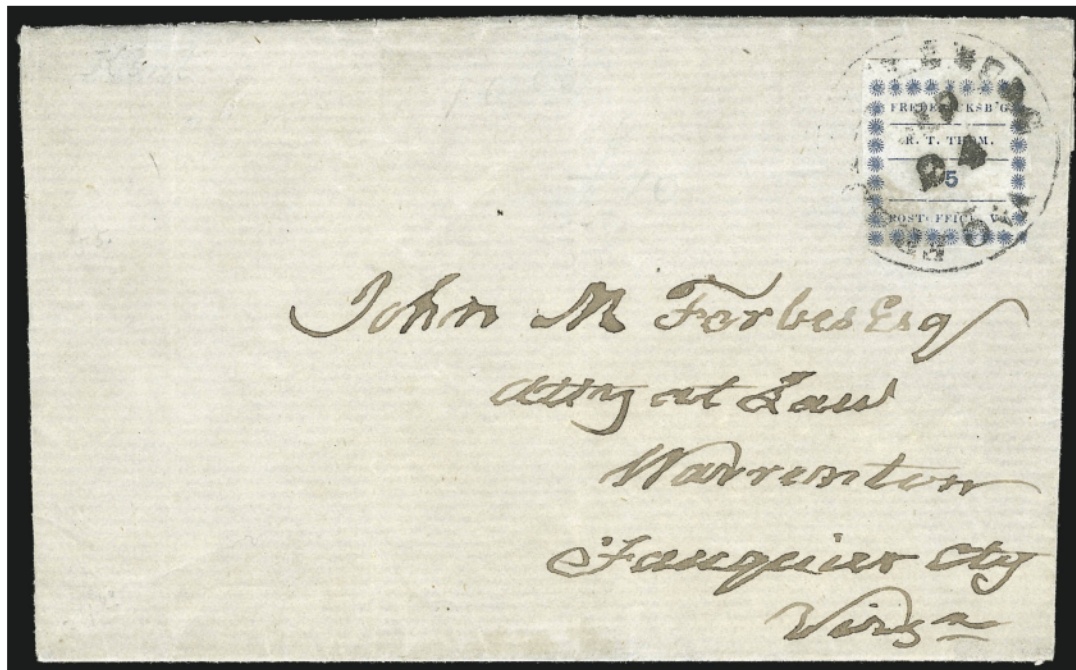 FREDERICKSB'G
R. T. THOM.
5
POST OFFICE, V
John M Forbes Esq
Atty at Law
Warrenton
Fauquier Cty
Virga